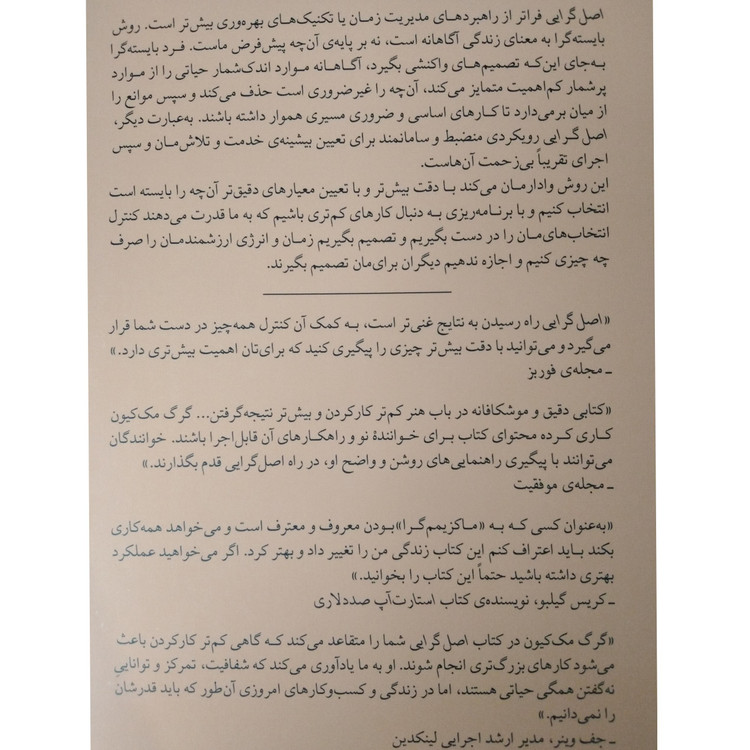 اصل‌گرایی فراتر از راهبردهای مدیریت زمان یا تکنیک‌های بهره‌وری بیش‌تر است. روش
بایسته‌گرا به معنای زندگی آگاهانه است، نه بر پایه‌ی آن‌چه پیش‌فرض ماست. فرد بایسته‌گرا
به‌جای این‌که تصمیم‌های واکنشی بگیرد، آگاهانه موارد اندک‌شمار حیاتی را از موارد
پرشمار کم‌اهمیت متمایز می‌کند، آن‌چه را غیرضروری است حذف می‌کند و سپس موانع را
از میان برمی‌دارد تا کارهای اساسی و ضروری مسیری هموار داشته باشند. به‌عبارت دیگر،
اصل‌گرایی رویکردی منضبط و سامانمند برای تعیین بیشینه‌ی خدمت و تلاش‌مان و سپس
اجرای تقریباً بی‌زحمت آن‌هاست.
این روش وادارمان می‌کند با دقت بیش‌تر و با تعیین معیارهای دقیق‌تر آن‌چه را بایسته است
انتخاب کنیم و با برنامه‌ریزی به دنبال کارهای کم‌تری باشیم که به ما قدرت می‌دهند کنترل
انتخاب‌های‌مان را در دست بگیریم و تصمیم بگیریم زمان و انرژی ارزشمندمان را صرف
چه چیزی کنیم و اجازه ندهیم دیگران برای‌مان تصمیم بگیرند.
«اصل‌گرایی راه رسیدن به نتایج غنی‌تر است، به کمک آن کنترل همه‌چیز در دست شما قرار
می‌گیرد و می‌توانید با دقت بیش‌تر چیزی را پیگیری کنید که برای‌تان اهمیت بیش‌تری دارد.»
ـ مجله‌ی فوربز
«کتابی دقیق و موشکافانه در باب هنر کم‌تر کارکردن و بیش‌تر نتیجه‌گرفتن... گرگ مک‌کیون
کاری کرده محتوای کتاب برای خوانندهٔ نو و راهکارهای آن قابل‌اجرا باشند. خوانندگان
می‌توانند با پیگیری راهنمایی‌های روشن و واضح او، در راه اصل‌گرایی قدم بگذارند.»
ـ مجله‌ی موفقیت
«به‌عنوان کسی که به «ماکزیمم‌گرا»بودن معروف و معترف است و می‌خواهد همه‌کاری
بکند باید اعتراف کنم این کتاب زندگی من را تغییر داد و بهتر کرد. اگر می‌خواهید عملکرد
بهتری داشته باشید حتماً این کتاب را بخوانید.»
ـ کریس گیلبو، نویسنده‌ی کتاب استارت‌آپ صددلاری
«گرگ مک‌کیون در کتاب اصل‌گرایی شما را متقاعد می‌کند که گاهی کم‌تر کارکردن باعث
می‌شود کارهای بزرگ‌تری انجام شوند. او به ما یادآوری می‌کند که شفافیت، تمرکز و تواناییِ
نه‌گفتن همگی حیاتی هستند، اما در زندگی و کسب‌وکارهای امروزی آن‌طور که باید قدرشان
را نمی‌دانیم.»
ـ جف وینر، مدیر ارشد اجرایی لینکدین